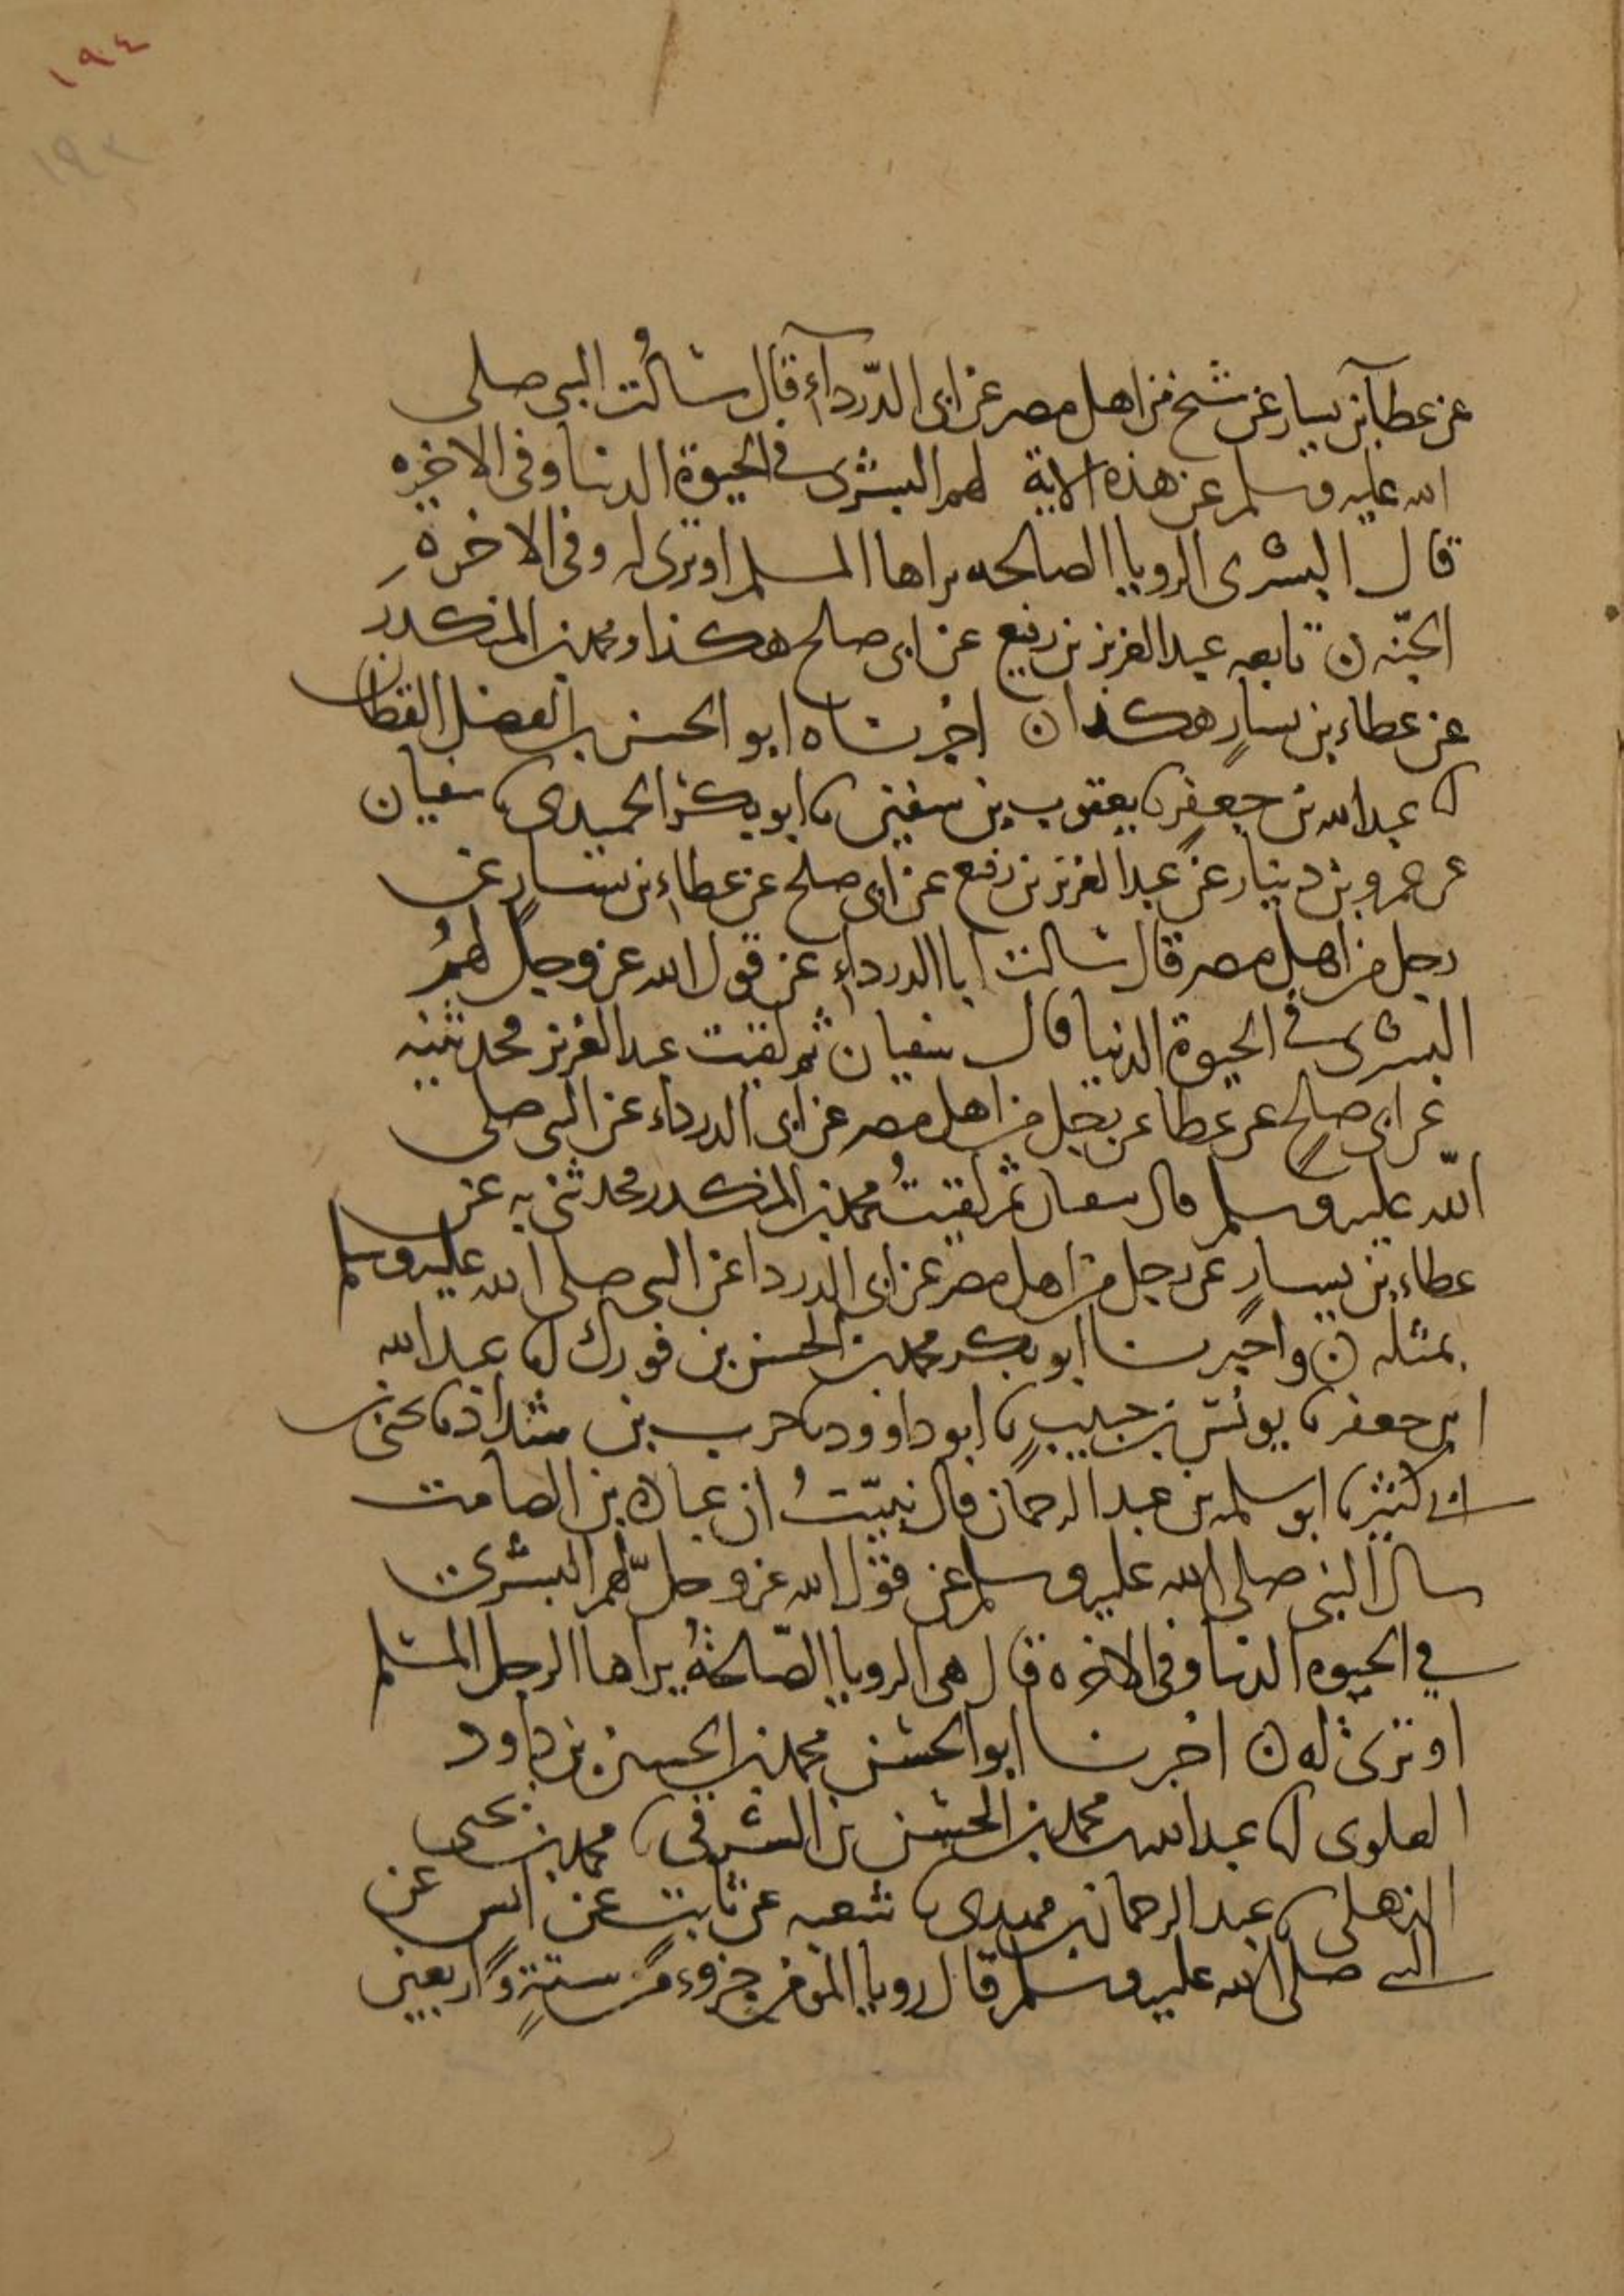 ١٩٤
١٩٣
عن عطآ بن يسار عن شيخ من اهل مصر عن ابى الدّردآء قال سالُت النبي صلى
الله عليه وسلم عن هذه الاية لهم البشرى في الحيوة الدنيا وفى الاخره
قال البشرى الرويا الصالحه يراها المسلم او ترى له وفى الاخرة
الجنّه ن تابعه عبد العزيز بن رفيع عن ابى صلح هكذا ومحمد بن المنكدر
عن عطاء بن يسارٍ هكذا ن اخبرناه ابو الحسين بن الفضل القطان
انا عبد الله بن جعفرٍ نا يعقوب بن سفين نا ابو بكر الحميدي نا سفيان
عن عمرو بن دينار عن عبد العزيز بن رفيع عن ابى صلح عن عطاء بن يسارٍ عن
رجل من اهل مصر قال سالت ابا الدرداء عن قول الله عز وجل لهمُ
البشرى في الحيوة الدنيا قال سفيان ثم لقيت عبد العزيز فحدثنيه
عن ابى صالحٍ عن عطا عن رجل من اهل مصر عن ابى الدرداء عن النبي صلى
اللّه عليه وسلم قال سفيان ثم لقيتُ محمد بن المنكدر فحدثنى به عن
عطاء بن يسارٍ عن رجل من اهل مصر عن ابى الدردا عن النبي صلى الله عليه وسلم
بمثله ن واخبرنا ابو بكر محمد بن الحسن بن فورك انا عبد الله
ابن جعفر نا يونس بن حبيبٍ نا ابو داوود نا حرب بن شداد نا يحيى بن
ابي كثير نا ابو سلمه بن عبد الرحمان قال نبيّتُ ان عباده بن الصامت
سال النبي صلى الله عليه وسلم عن قول الله عز وجلّ لهم البشرى
في الحيوه الدنيا وفى الاخره قال هي الرويا الصّالحةُ يراها الرجل المسلم
او ترى له ن اخبرنا ابو الحسن محمد بن الحسين بن داود
العلوى انا عبد الله بن محمد بن الحسن بن الشرقي نا محمد بن يحيى
الذهلي نا عبد الرحمان بن مهدى نا شعبه عن ثابت عن انس عن
النبي صلى الله عليه وسلم قال رويا المومن جزوء من ستةٍ واربعين